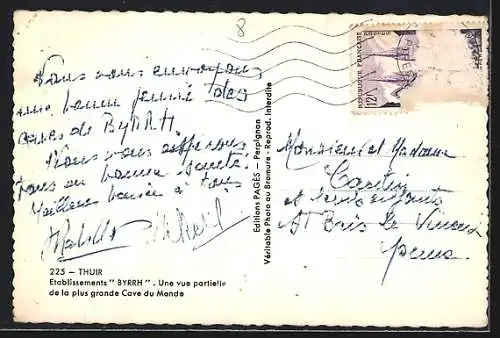 8
Nous vous envoyons
une bonne journée des
caves de BYRRH.
Nous vous espérons
tous en bonne santé.
Meilleurs baisers à tous
225 — THUIR
Etablissements " BYRRH " . Une vue partielle
de la plus grande Cave du Monde
Editions PAGÈS — Perpignan
Véritable Photo au Bromure - Reprod. Interdite
POSTES
REPUBLIQUE FRANÇAISE
12F
Monsieur et Madame
et leurs enfants
St Bris le Vineux
Yonne